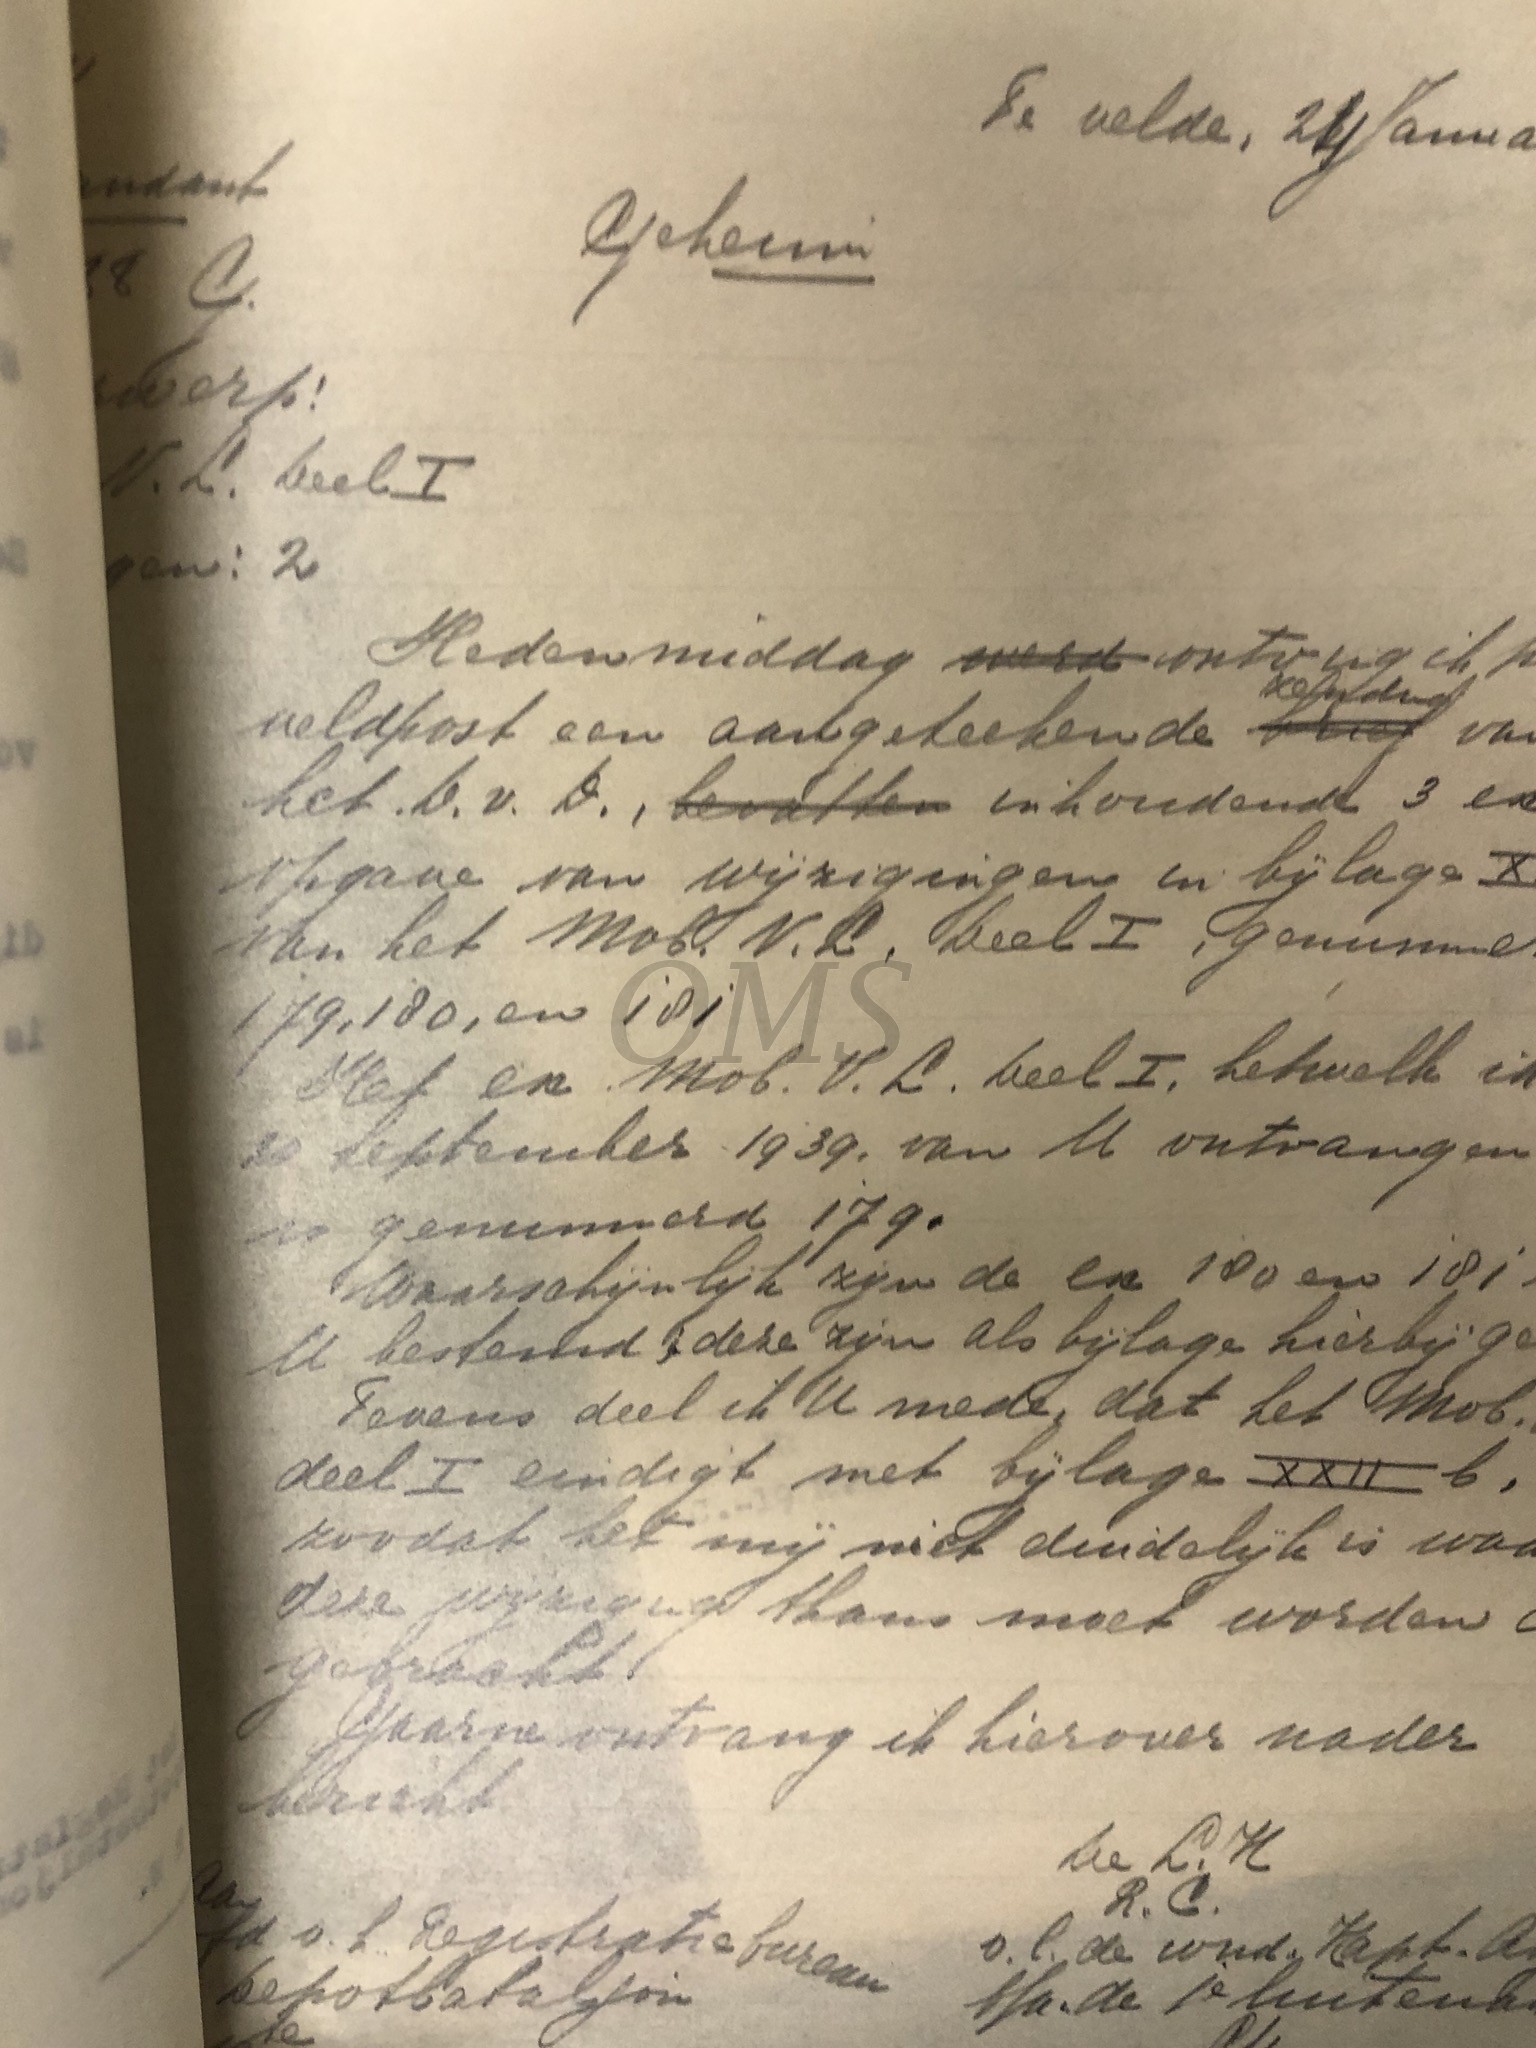 Te velde, 24 Janua
Geheim
andant
28 G.
rwerp:
V. L. Deel I
gen: 2
Hedenmiddag werd ontving ik p
zending
veldpost een aangeteekende brief van
het D.v.D., bevatten inhoudende 3 ex
opgave van wijzigingen in bijlage X
van het Mob. V.L. Deel I, genumme
179, 180, en 181
Het ex Mob. V.L. Deel I, hetwelk ik
20 September 1939. van U ontvangen
is genummerd 179.
Waarschijnlijk zijn de ex 180 en 181
U bestemd; deze zijn als bijlage hierbij ge
Tevens deel ik U mede, dat het Mob.
deel I eindigt met bijlage XXII b,
zoodat het mij niet duidelijk is waa
deze wijziging thans moet worden a
gebracht.
Gaarne ontvang ik hierover nader
bericht
De L. K
R. C.
Aan
o. h. Registratiebureau
o.l. de wnd. Kapt. A
Depotbataljon
b/a. de 1e luitena
OMS